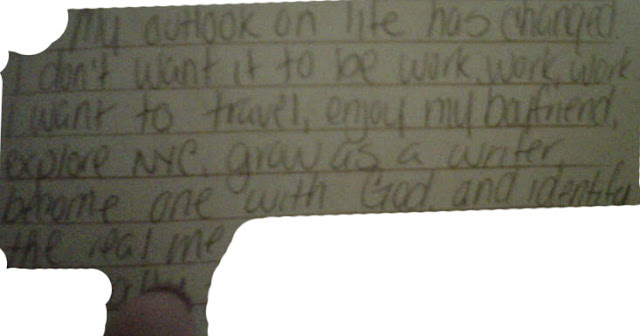 My outlook on life has changed.
I don't want it to be work, work, work
I want to travel, enjoy my boyfriend,
explore NYC, grow as a writer,
become one with God, and identify
the real me